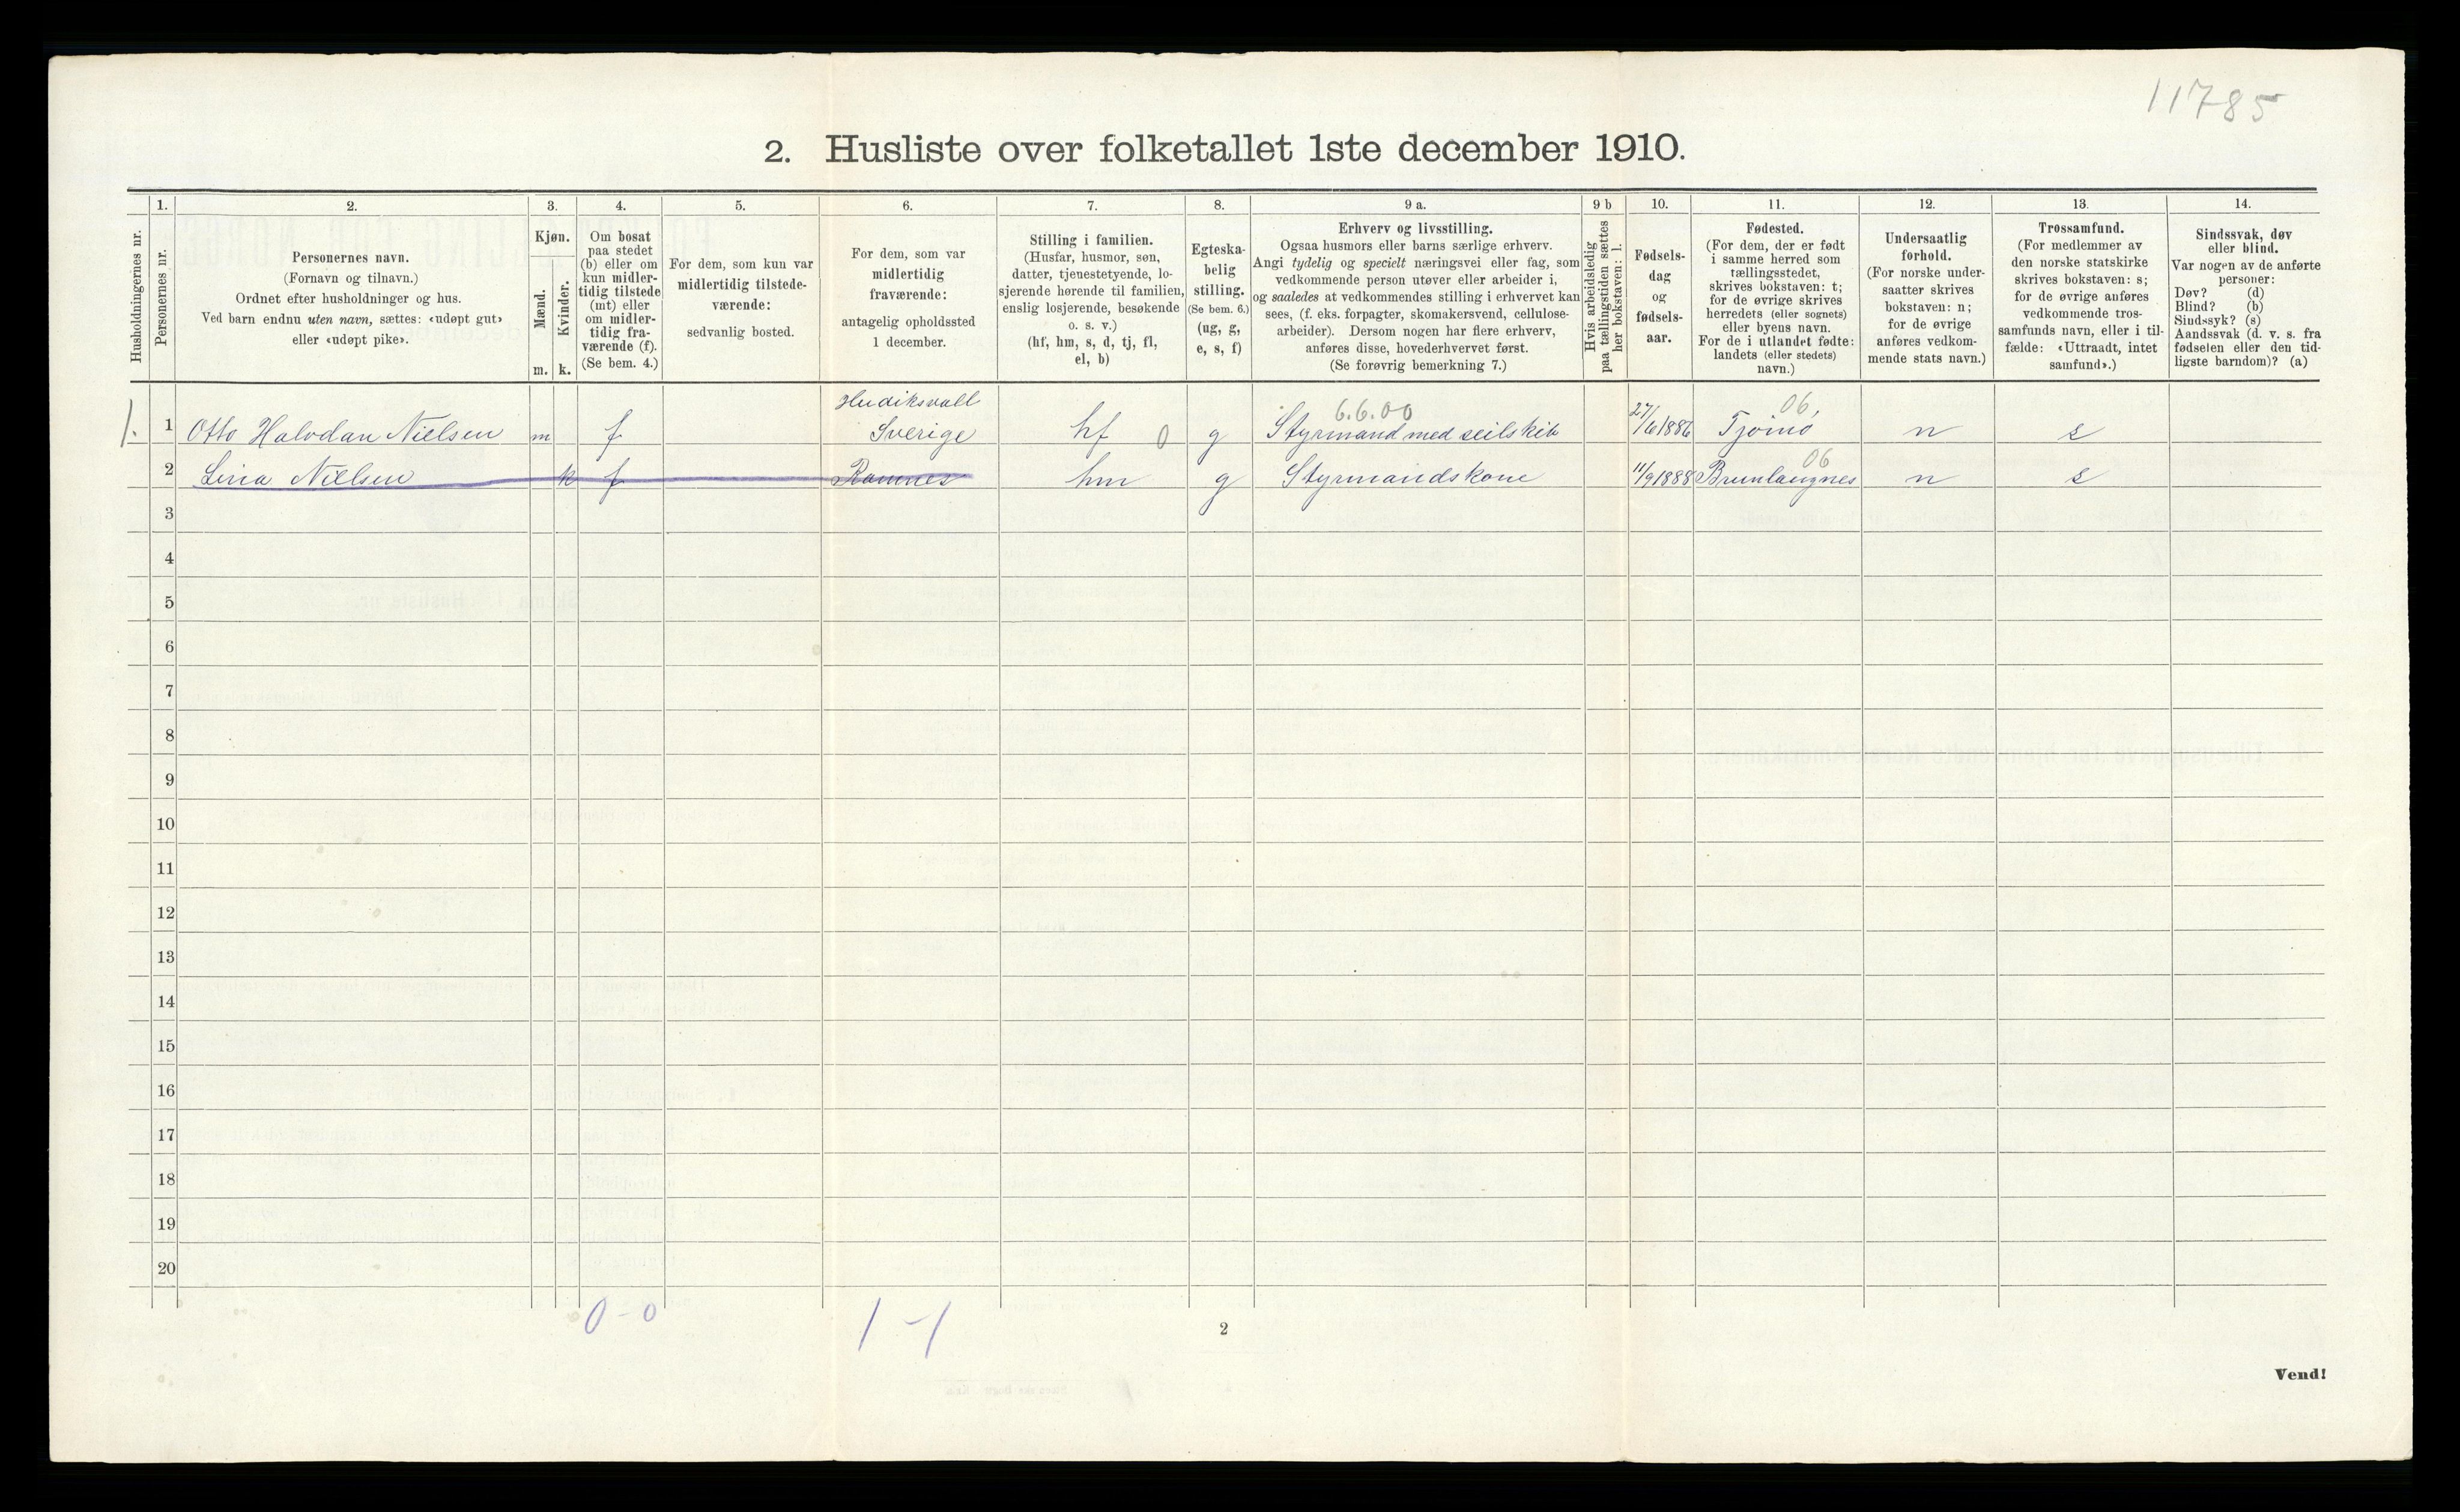 11785
2. Husliste over folketallet 1ste december 1910.
Husholdningernes nr.
1.
Personernes nr.
2.
Personernes navn.
(Fornavn og tilnavn.)
Ordnet efter husholdninger og hus.
Ved barn endnu uten navn, sættes: «udøpt gut»
eller «udøpt pike».
3.
Kjøn.
Mænd.
Kvinder.
m. k.
4.
Om bosat
paa stedet
(b) eller om
kun midler-
tidig tilstede
(mt) eller
om midler-
tidig fra-
værende (f).
(Se bem. 4.)
5.
For dem, som kun var
midlertidig tilstede-
værende:
sedvanlig bosted.
6.
For dem, som var
midlertidig
fraværende:
antagelig opholdssted
1 december.
7.
Stilling i familien.
(Husfar, husmor, søn,
datter, tjenestetyende, lo-
sjerende hørende til familien,
enslig losjerende, besøkende
o. s. v.)
(hf, hm, s, d, tj, fl,
el, b)
8.
Egteska-
belig
stilling.
(Se bem. 6.)
(ug, g,
e, s, f)
9 a.
Erhverv og livsstilling.
Ogsaa husmors eller barns særlige erhverv.
Angi tydelig og specielt næringsvei eller fag, som
vedkommende person utøver eller arbeider i,
og saaledes at vedkommendes stilling i erhvervet kan
sees, (f. eks. forpagter, skomakersvend, cellulose-
arbeider). Dersom nogen har flere erhverv,
anføres disse, hovederhvervet først.
(Se forøvrig bemerkning 7.)
9 b
Hvis arbeidsledig
paa tællingstiden sættes
her bokstaven: l.
10.
Fødsels-
dag
og
fødsels-
aar.
11.
Fødested.
(For dem, der er født
i samme herred som
tællingsstedet,
skrives bokstaven: t;
for de øvrige skrives
herredets (eller sognets)
eller byens navn.
For de i utlandet fødte:
landets (eller stedets)
navn.)
12.
Undersaatlig
forhold.
(For norske under-
saatter skrives
bokstaven: n;
for de øvrige
anføres vedkom-
mende stats navn.)
13.
Trossamfund.
(For medlemmer av
den norske statskirke
skrives bokstaven: s;
for de øvrige anføres
vedkommende tros-
samfunds navn, eller i til-
fælde: «Uttraadt, intet
samfund».)
14.
Sindssvak, døv
eller blind.
Var nogen av de anførte
personer:
Døv? (d)
Blind? (b)
Sindssyk? (s)
Aandssvak (d. v. s. fra
fødselen eller den tid-
ligste barndom)? (a)
Hudiksvall 6.6.00 06,
1. 1 Otto Halvdan Nielsen m f Sverige hf 0 g Styrmand med seilskib 27/6 1886 Tjømø n s
06
2 Lina Nielsen k f Ramnes hm g Styrmandskone 11/9 1888 Brunlangnes n s
3
4
5
6
7
8
9
10
11
12
13
14
15
16
17
18
19
20
0-0 1-1
2
Vend!